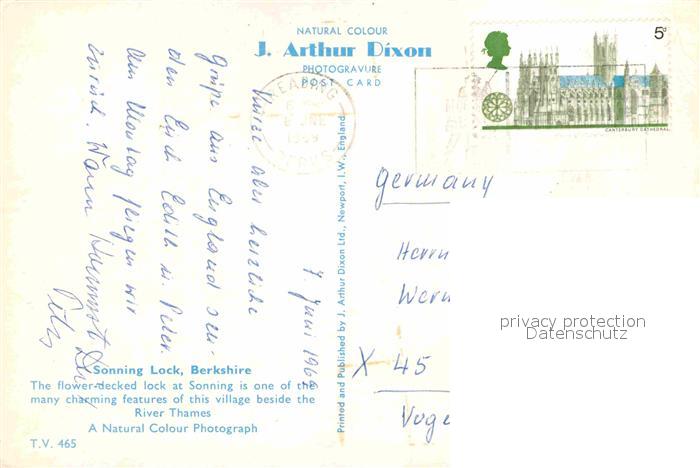 NATURAL COLOUR
J. Arthur Dixon
PHOTOGRAVURE
POST CARD
5d
CANTERBURY CATHEDRAL
READING
JNE
1969
BERKS
7. Juni 1969
Kurze aber herzliche
Grüße aus England sen-
den Euch Edith u. Peter.
Am Montag fliegen wir
zurück. Wann kommst Du
Printed and Published by J. Arthur Dixon Ltd., Newport, I.W., England.
Germany
Herrn
Wern
X 45
Voge
privacy protection
Datenschutz
Sonning Lock, Berkshire
The flower-decked lock at Sonning is one of the
many charming features of this village beside the
River Thames
A Natural Colour Photograph
T.V. 465